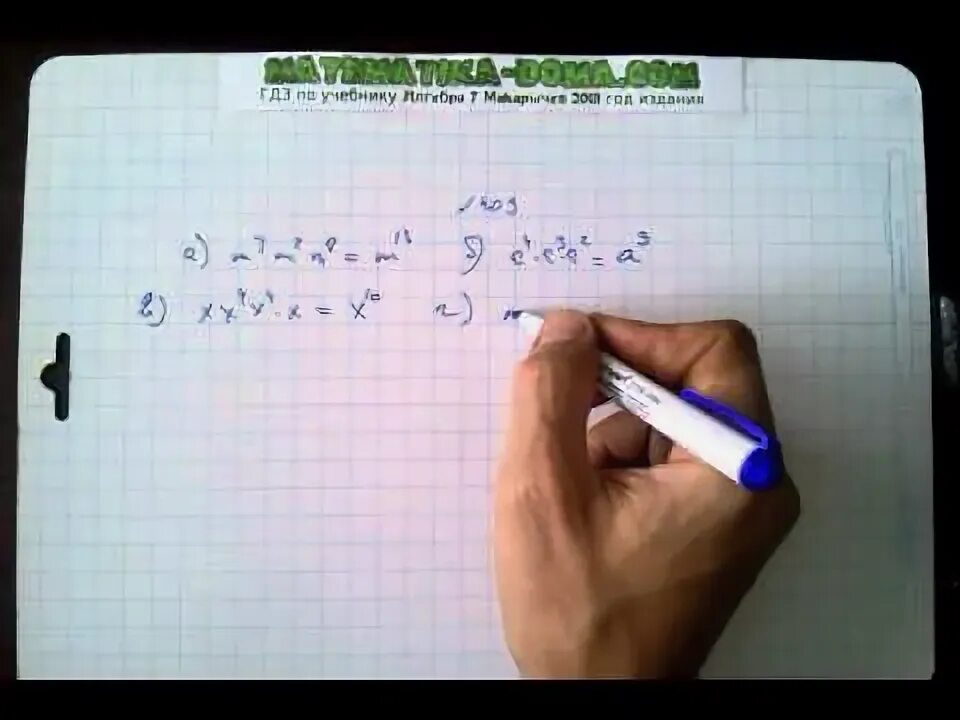 MATEMATIKA-DOMA.COM
ГДЗ по учебнику Алгебра 7 Макарычев 2001 год издания
а) m m² = m б) a⁴ · a³ a² = a⁹
в) x x⁴ x⁴ · x = x¹⁰ г)